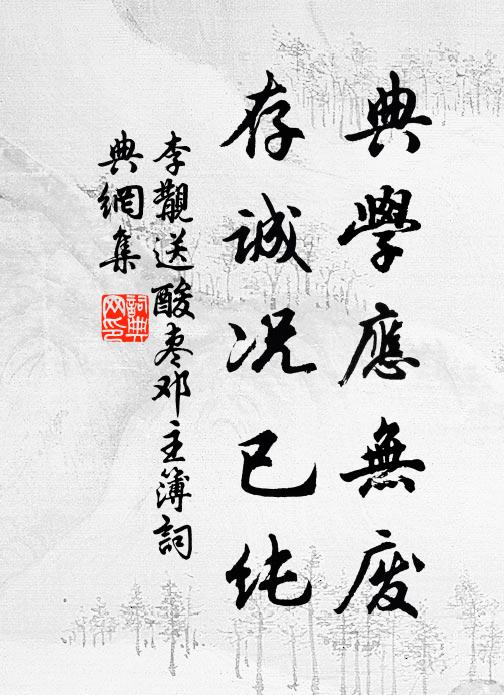 典學應無废
存誠况已纯
李覯送酸枣邓主簿詞
典網集
詞典
网印